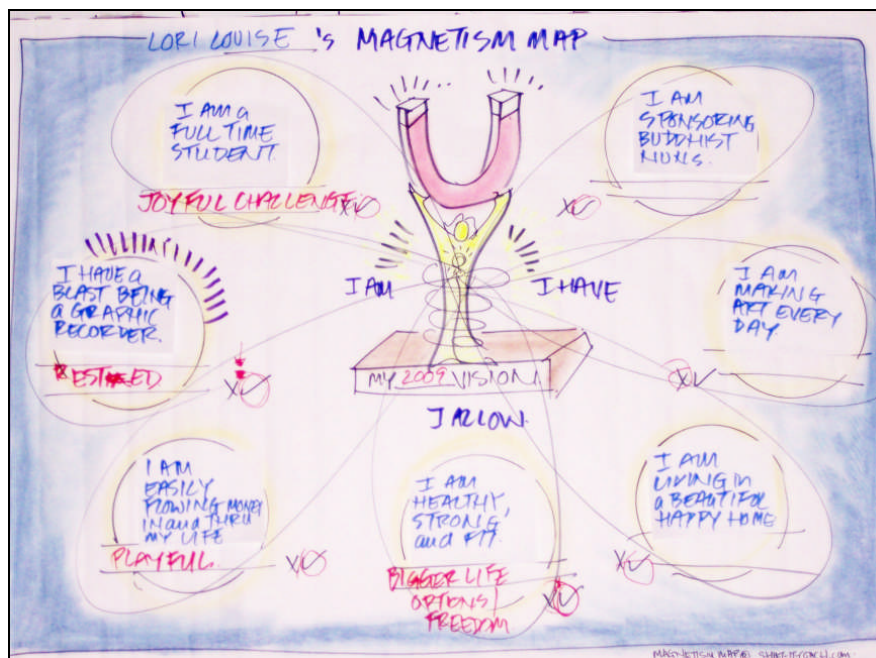 LORI LOUISE 's MAGNETISM MAP
I AM a
FULL TIME
STUDENT.
JOYFUL CHALLENGE
X✓
I AM
SPONSORING
BUDDHIST
NUNS.
X✓
I HAVE a
BLAST BEING
a GRAPHIC
RECORDER.
X✓
I AM
I HAVE
I AM
MAKING
ART EVERY
DAY.
X✓
MY 2009 VISION
I ALLOW
I AM
EASILY
FLOWING MONEY
IN and THRU
MY LIFE
PLAYFUL
X✓
I AM
HEALTHY,
STRONG,
and FIT.
BIGGER LIFE
OPTIONS/
FREEDOM
X✓
I AM
LIVING in
a BEAUTIFUL
HAPPY HOME
X✓
MAGNETISM MAP